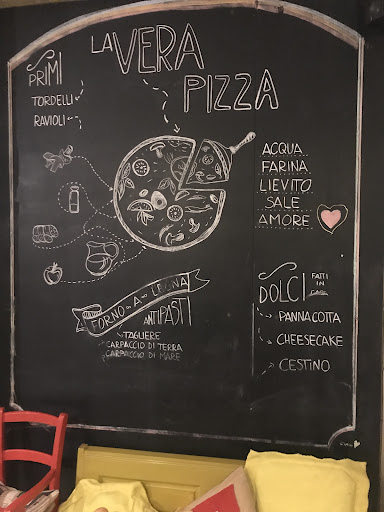 LA VERA
PIZZA
PRIMI
TORDELLI
RAVIOLI
ACQUA
FARINA
LIEVITO
SALE
AMORE
FORNO-A-LEGNA
ANTIPASTI
TAGLIERE
CARPACCIO DI TERRA
CARPACCIO DI MARE
DOLCI FATTI
IN
CASA
PANNACOTTA
CHEESECAKE
CESTINO